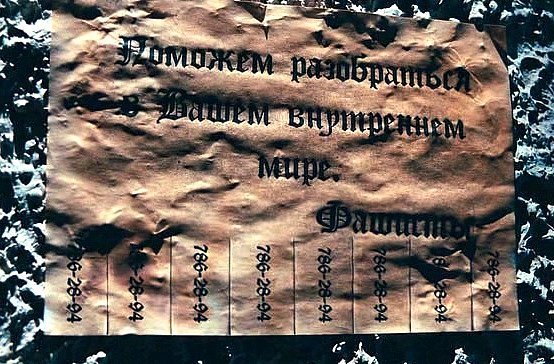 Поможем разобраться
в Вашем внутреннем
мире.
Фашисты
786-28-94 786-28-94 786-28-94 786-28-94 786-28-94 786-28-94 786-28-94 786-28-94